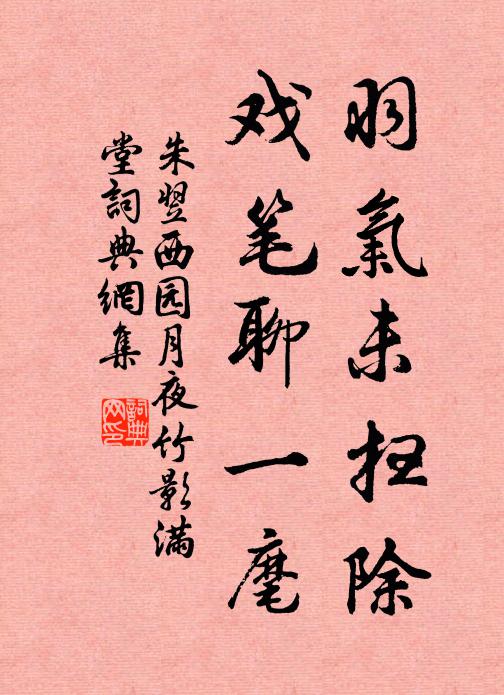 羽氣未扫除
戏笔聊一麾
朱翌西园月夜竹影满
堂詞典網集
詞典
网印